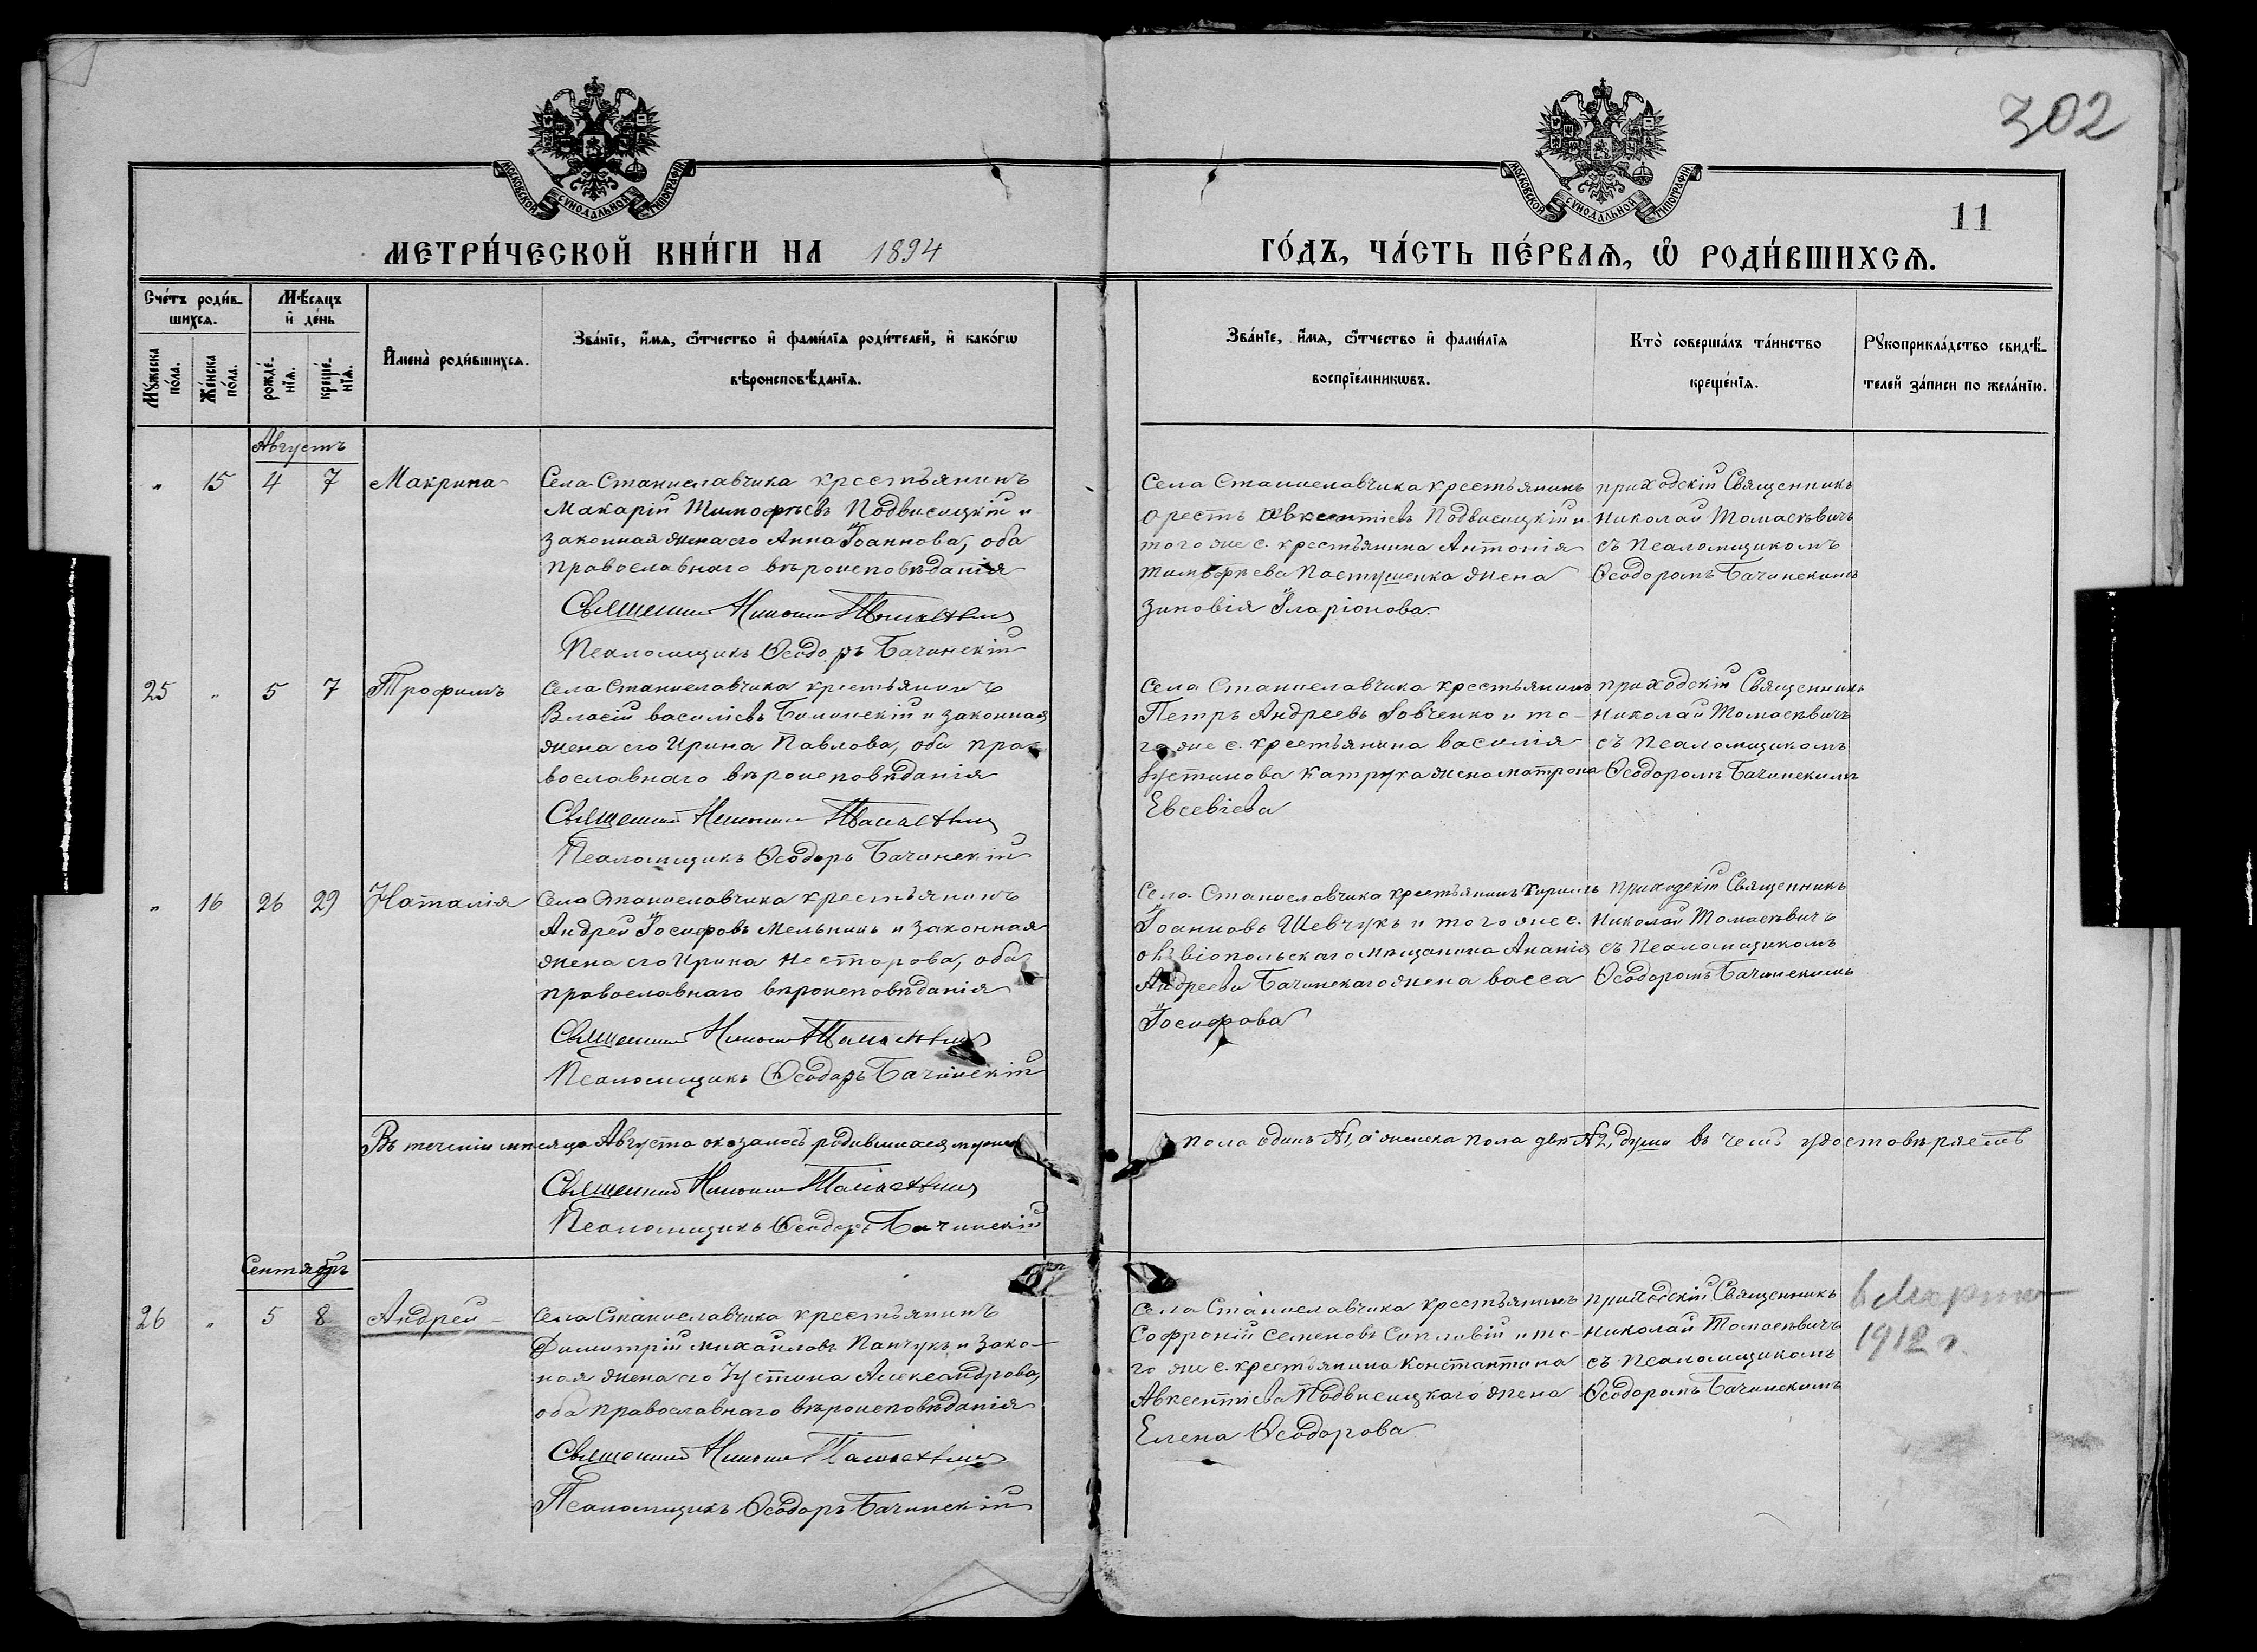 302
МОСКОВСКОЙ СУНОДАЛЬНОЙ ТИПОГРАФІИ
МОСКОВСКОЙ СУНОДАЛЬНОЙ ТИПОГРАФІИ
11
МЕТРИ́ЧЕСКОЙ КНИ́ГИ НА 1894
ГО́ДЪ, ЧА́СТЬ ПЕ́РВАѦ, Ѿ РОДИ́ВШИХСѦ.
Сче́тъ роди́в-
шихсѧ.
Мꙋжеска
по́ла.
Же́нска
по́ла.
Мѣ́сяцъ
и҆ де́нь
рожде́-
нїѧ.
креще́-
нїѧ.
И҆мена̀ роди́вшихсѧ.
Зва́нїе, и҆́мѧ, ѻ҆́тчество и҆ фами́лїѧ роди́телей, и҆ како́гѡ
вѣроисповѣ́данїѧ.
Зва́нїе, и҆́мѧ, ѻ҆́тчество и҆ фами́лїѧ
воспрїе́мникѡвъ.
Кто̀ соверша́лъ та́инство
креще́нїѧ.
Рꙋкоприкла́дство свидѣ́-
телей за́писи по жела́нїю.
Августъ
" 15 4 7 Макрина
Села Станиславчика крестьянинъ
Макарій Тимофѣевъ Подвисоцкій и
законная жена его Анна Іоаннова, оба
православнаго вѣроисповѣданія
Священникъ Николай Томасѣвичъ
Псаломщикъ Ѳеодоръ Бачинскій
Села Станиславчика крестьянинъ
Орестъ Авксентіевъ Подвисоцкій и
того же с. крестьянина Антонія
Тимофѣева Пастушенка жена
Зиновія Иларіонова.
приходскій Священникъ
Николай Томасѣвичъ
съ Псаломщикомъ
Ѳеодоромъ Бачинскимъ
25 " 5 7 Трофимъ
Села Станиславчика крестьянинъ
Власій Василіевъ Бачинскій и законная
жена его Ирина Павлова, оба пра-
вославнаго вѣроисповѣданія
Священникъ Николай Томасѣвичъ
Псаломщикъ Ѳеодоръ Бачинскій
Села Станиславчика крестьянинъ
Петръ Андреевъ Вовченко и то-
го же с. крестьянина Василія
Іустинова жена Матрона
Евсевіева
приходскій Священникъ
Николай Томасѣвичъ
съ Псаломщикомъ
Ѳеодоромъ Бачинскимъ
" 16 26 29 Наталія
Села Станиславчика крестьянинъ
Андрей Іосифовъ Мельникъ и законная
жена его Ирина Несторова, оба
православнаго вѣроисповѣданія
Священникъ Николай Томасѣвичъ
Псаломщикъ Ѳеодоръ Бачинскій
Села Станиславчика крестьянинъ Кириллъ
Іоанновъ Шевчукъ и того же с.
мѣщанина Ананія
Андреева Бачинскаго жена Васса
Іосифова
приходскій Священникъ
Николай Томасѣвичъ
съ Псаломщикомъ
Ѳеодоромъ Бачинскимъ
Въ теченіи мѣсяца Августа оказалось родившихся мужеск
пола одинъ №1, а женска пола двѣ №2, души въ чемъ удостовѣряемъ
Священникъ Николай Томасѣвичъ
Псаломщикъ Ѳеодоръ Бачинскій
Сентябрь
26 " 5 8 Андрей
Села Станиславчика крестьянинъ
Димитрій Михаиловъ Панчукъ и зако-
ная жена его Іустина Александрова,
оба православнаго вѣроисповѣданія
Священникъ Николай Томасѣвичъ
Псаломщикъ Ѳеодоръ Бачинскій
Села Станиславчика крестьянинъ
Софроній Семеновъ Сопливій и то-
го же с. крестьянина Константина
Авксентіева Подвисоцкаго жена
Елена Ѳеодорова
приходскій Священникъ
Николай Томасѣвичъ
съ Псаломщикомъ
Ѳеодоромъ Бачинскимъ
1912 г.